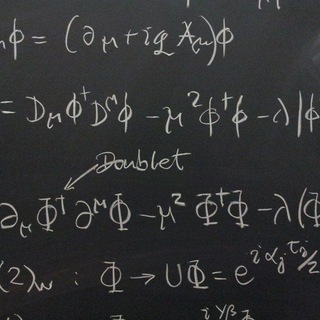 φ = (∂μ + ig Aμ)φ
= DμΦ†D^μφ − μ²φ†φ − λ|φ
Doublet
∂μΦ†∂^μΦ − μ²Φ†Φ − λ(Φ
(2)w : Φ → UΦ = e^{iαj τj/2